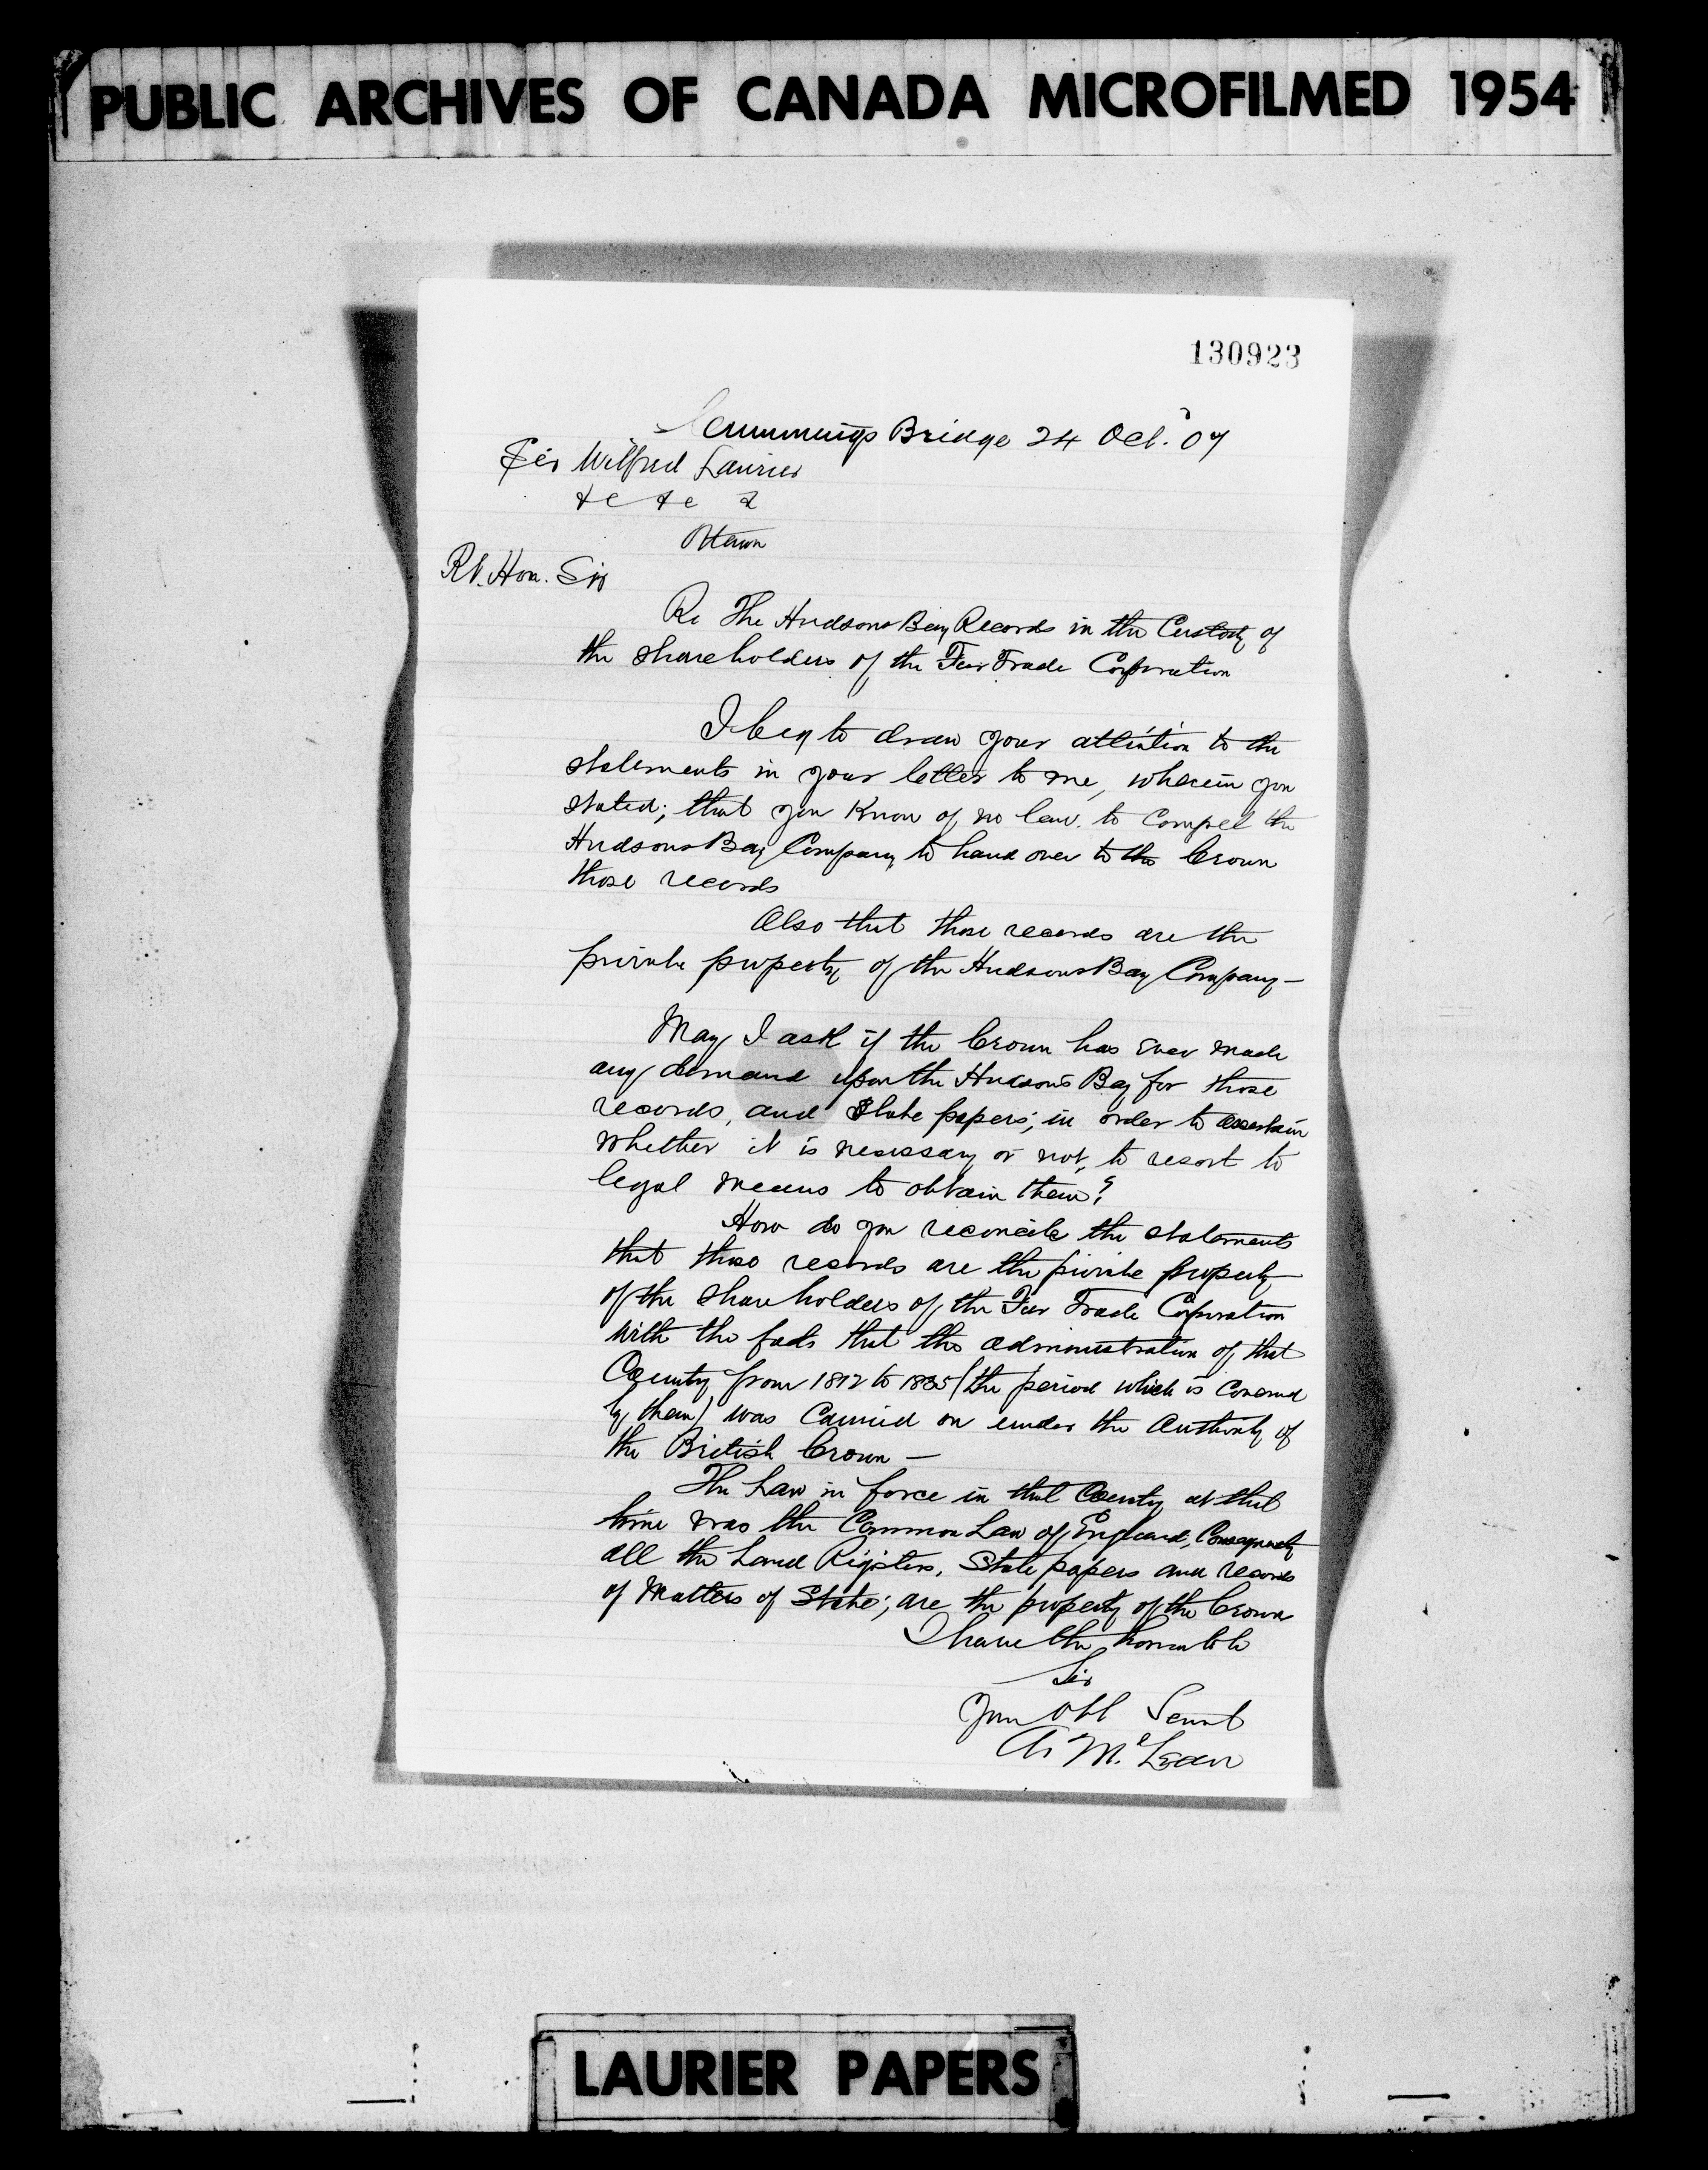 PUBLIC ARCHIVES OF CANADA MICROFILMED 1954
130923
Cummings Bridge 24 Oct. '07
Sir Wilfred Laurier
&c &c &
Ottawa
Rt. Hon. Sir
Re The Hudsons Bay Records in the Custody of
the shareholders of the Fur Trade Corporation
I beg to draw your attention to the
statements in your letter to me, wherein you
stated; that you Know of no law to Compel the
Hudsons Bay Company to hand over to the Crown
those records
Also that those records are the
private property of the Hudsons Bay Company —
May I ask if the Crown has Ever made
any demand upon the Hudsons Bay for those
records, and State papers; in order to ascertain
whether it is necessary or not, to resort to
legal means to obtain them?
How do you reconcile the statements
that those records are the private property
of the Shareholders of the Fur Trade Corporation
with the facts that the administration of that
Country from 1812 to 1835 (the period which is Covered
by them) was Carried on under the Authority of
the British Crown —
The Law in force in that Country at that
time was the Common Law of England, Consequently
all the Land Registers, State papers and records
of Matters of State; are the property of the Crown
I have the honour to be
Sir
Your Obt Servt
A. McLean
LAURIER PAPERS